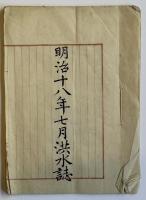 明治十八年七月洪水誌